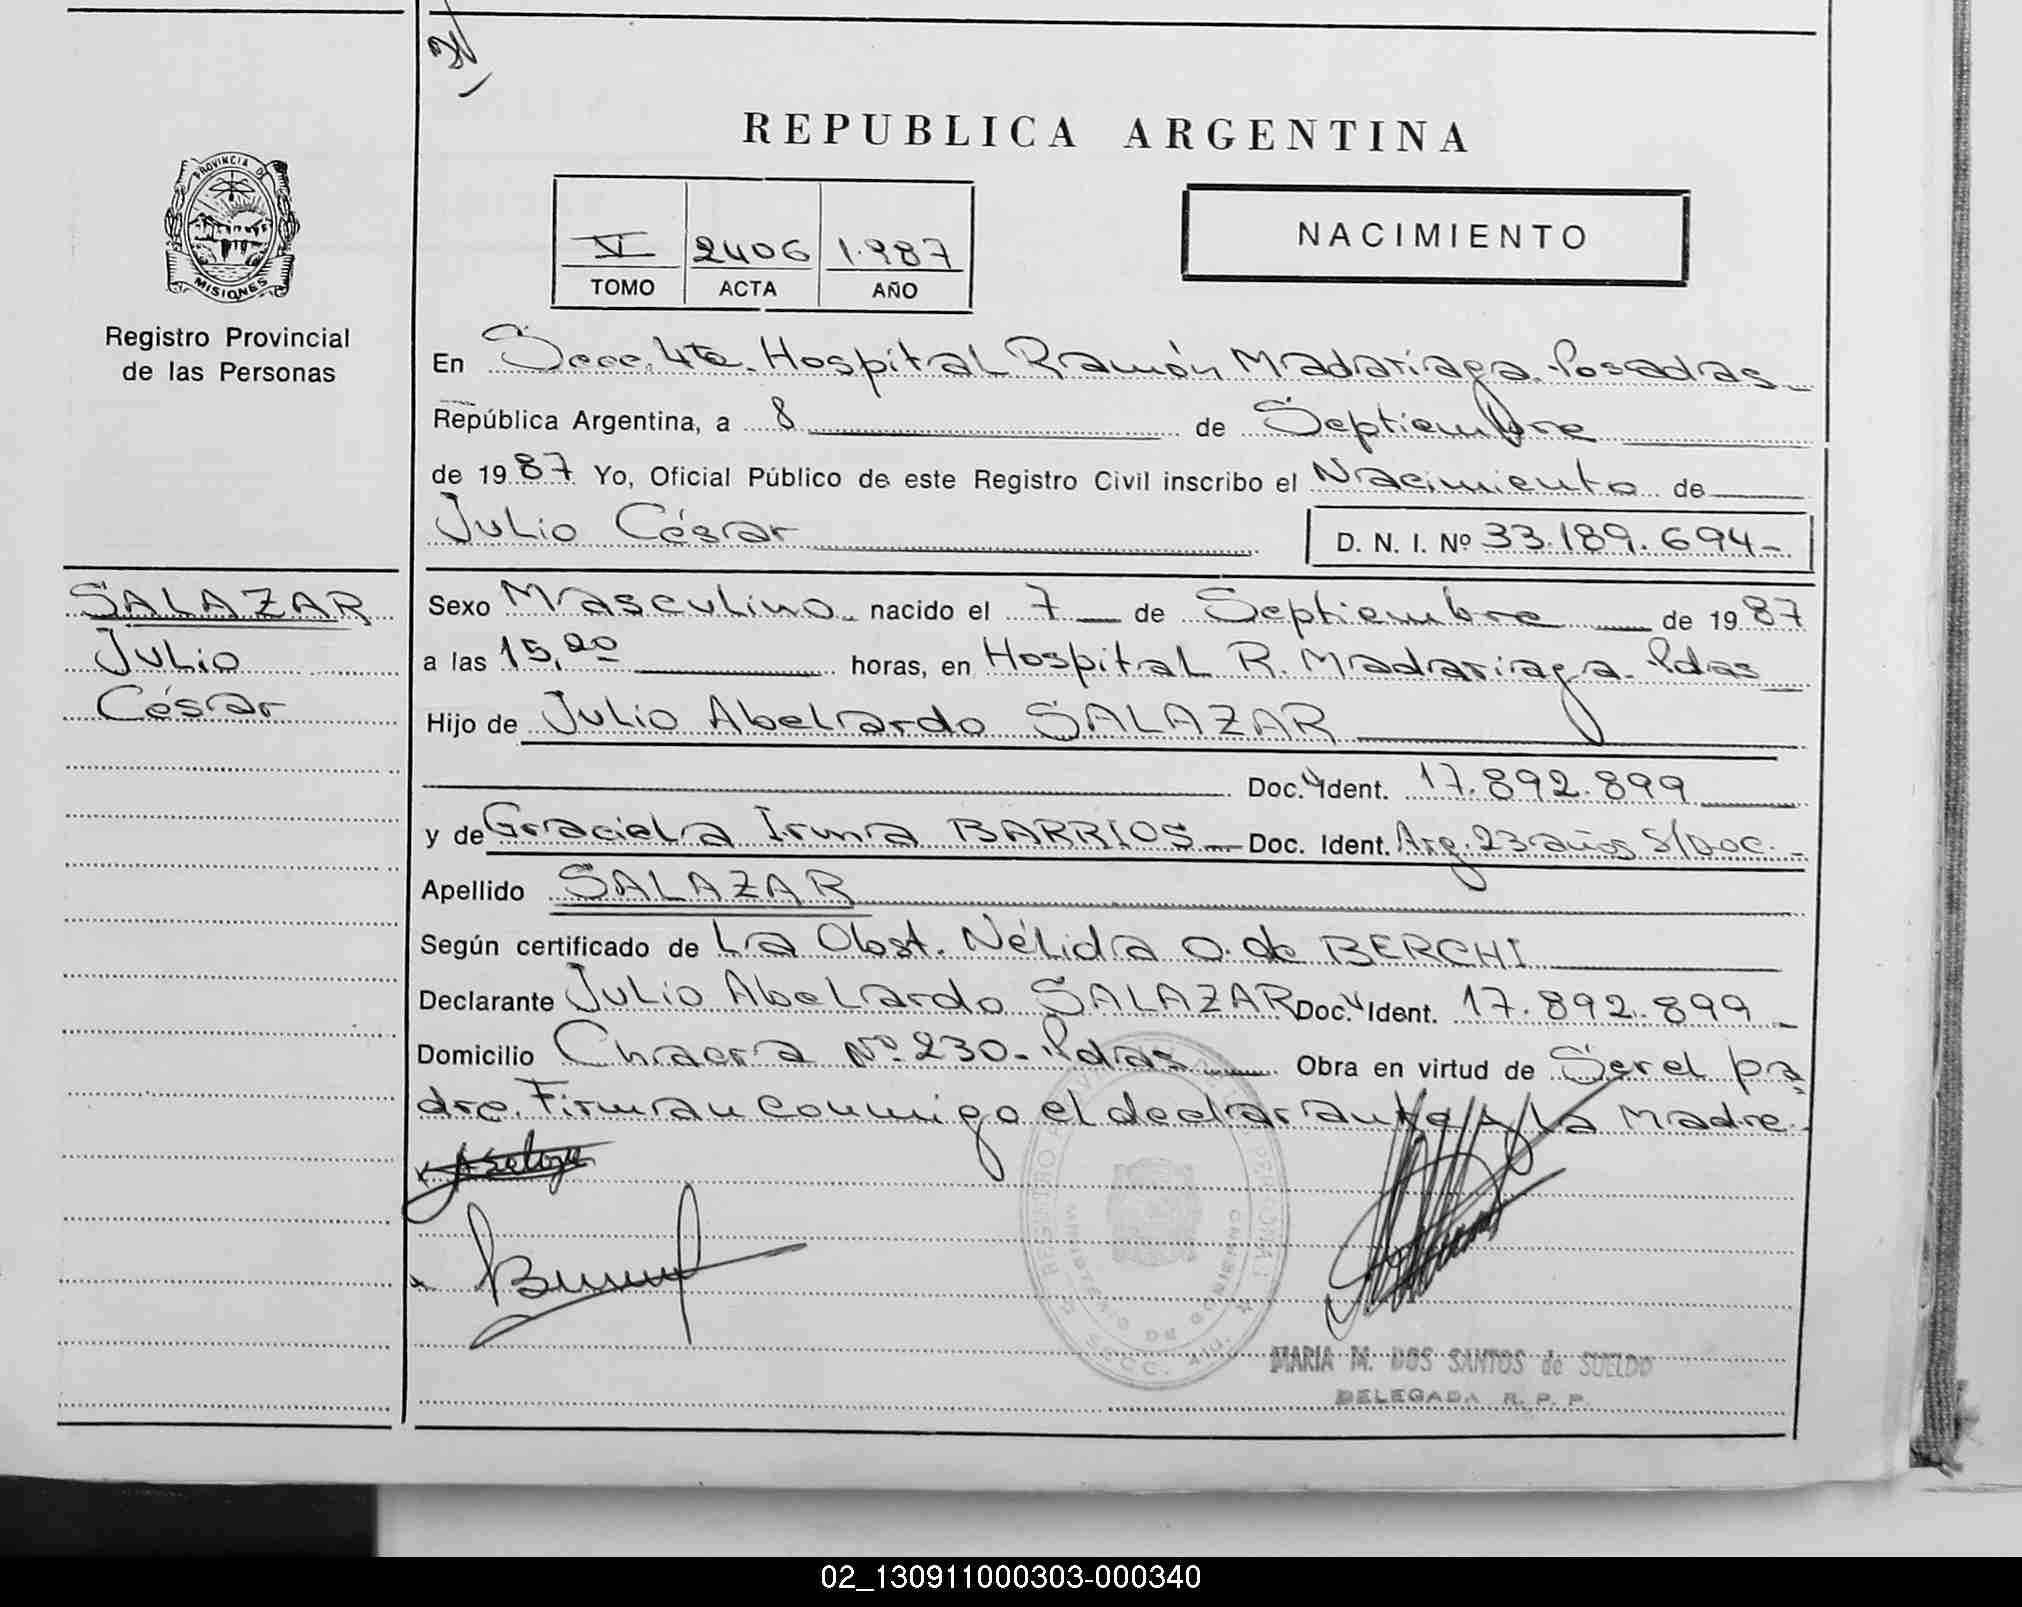 REPUBLICA ARGENTINA
PROVINCIA D
MISIONES
Registro Provincial
de las Personas
VI 2406 1.987
TOMO ACTA AÑO
NACIMIENTO
En Secc. 4ta. Hospital Ramón Madariaga. Posadas
República Argentina, a 8 de Septiembre
de 1987 Yo, Oficial Público de este Registro Civil inscribo el Nacimiento de
Julio César D. N. I. Nº 33.189.694-
SALAZAR
Julio
César
Sexo Masculino nacido el 7 de Septiembre de 1987
a las 15,20 horas, en Hospital R. Madariaga. Pdas
Hijo de Julio Abelardo SALAZAR
Doc. Ident. 17.892.899
y de Graciela Irma BARRIOS Doc. Ident. Arg. 23 años S/Doc.
Apellido SALAZAR
Según certificado de La Obst. Nélida O. de BERCHI
Declarante Julio Abelardo SALAZAR Doc. Ident. 17.892.899
Domicilio Chacra Nº 230- Pdas Obra en virtud de Ser el pa
dre. Firman conmigo el declarante y La Madre.
MARIA M. DOS SANTOS de SUELDO
DELEGADA R. P. P.
02_130911000303-000340